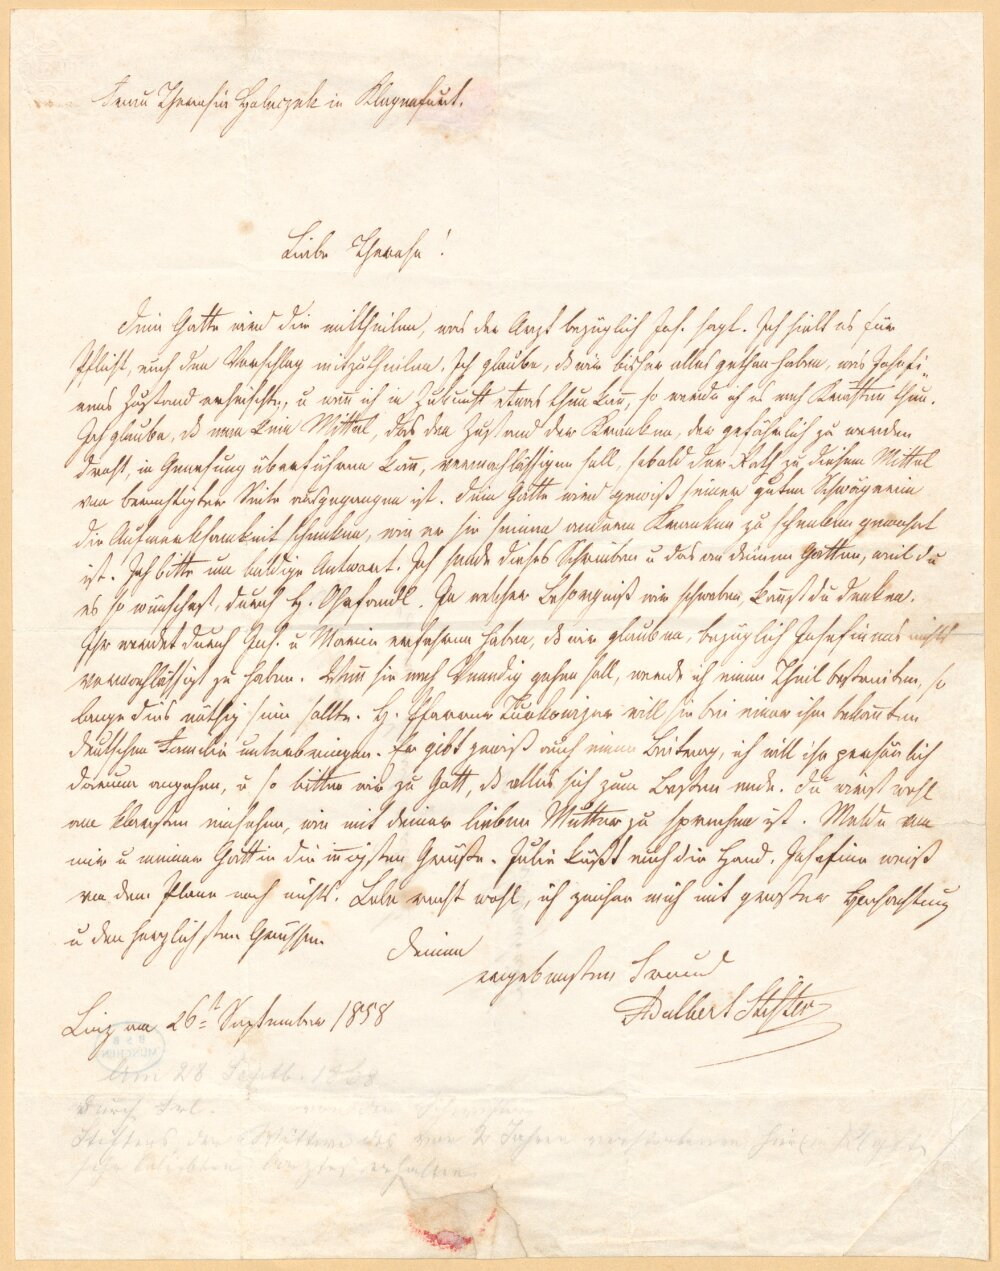 Frau Theresia Holaczek in Klagenfurt.
Liebe Therese!
Dein Gatte wird dir mittheilen, was der Arzt bezüglich Jos. sagt. Ich hielt es für
Pflicht, euch den Vorschlag mitzutheilen. Ich glaube, dß wir bisher alles gethan haben, was Josefi-
nens Zustand erheischte, u was ich in Zukunft etwas thun kann, so werde ich es nach Kräften thun.
Ich glaube, dß man kein Mittel, das den Zustand der Kranken, der gefährlich zu werden
droht, in Genesung überführen kann, vernachlässigen soll, sobald der Rath zu diesem Mittel
von berechtigter Seite ausgegangen ist. Dein Gatte wird gewiß seiner guten Schwägerin
die Aufmerksamkeit schenken, wie er sie seinen anderen Kranken zu schenken gewohnt
ist. Ich bitte um baldige Antwort. Ich sende dieses Schreiben u das an deinen Gatten, weil du
es so wünschest, durch H. In welcher Besorgniß wir schweben, kannst du denken.
Ihr werdet durch Jos. u Marie erfahren haben, dß wir glauben, bezüglich Josefinens nichts
vernachlässigt zu haben. Wenn sie nach Venedig gehen soll, werde ich einen Theil bestreiten, so
lange dies nöthig sein sollte. H. Pfarrer will sie bei einer ihm bekannten
deutschen Familie unterbringen. Er gibt gewiß auch einen Beitrag, ich will ihn persönlich
darum angehen, u so bitten wir zu Gott, dß alles sich zum Besten wende. Du wirst wohl
am klarsten einsehen, wie mit deiner lieben Mutter zu sprechen ist. Melde von
mir u meiner Gattin die innigsten Grüße. Julie küßt euch die Hand. Josefine weiß
von dem Plane noch nichts. Lebe recht wohl, ich zeichne mich mit großer Hochachtung
u den herzlichsten Grüssen
Deinen
ergebensten Freund
Adalbert Stifter
Linz am 26st. September 1858
BSB
MÜNCHEN
Am 28 Septb. 1858
durch Frl. von den
Stifters, der Wittwe des vor 2 Jahren verstorbenen hier in Klgft.
sehr beliebten Arztes erhalten